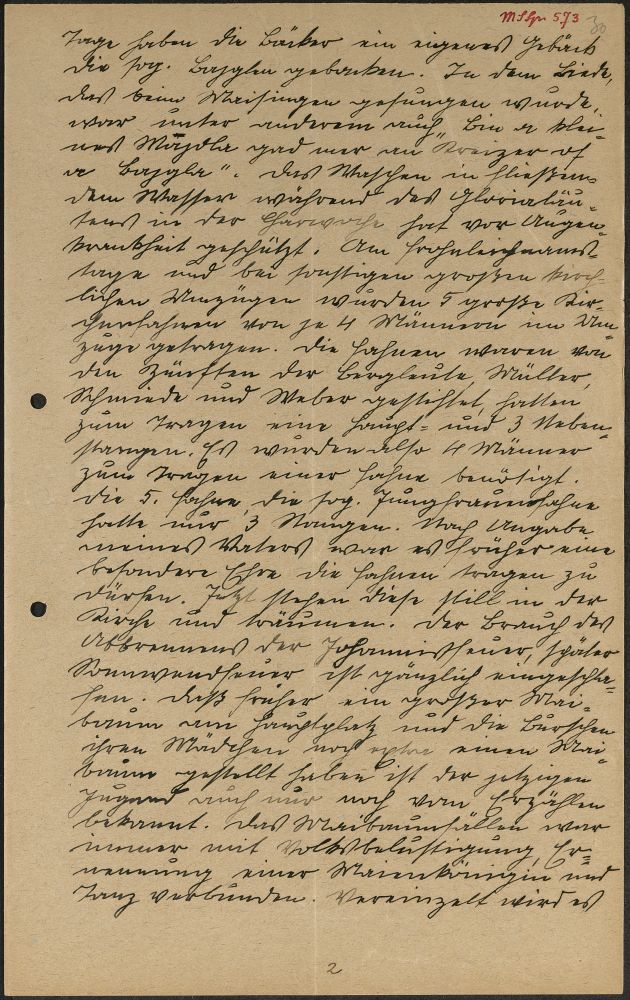 MSSpr 573
30
Tage haben die Bäcker ein eigenes Gebäck
die sog. Bajglen gebacken. In dem Liede,
das beim Maisingen gesungen wurde,
war unter anderem auch „Bin a klei-
nes Majdla gad mer an Kreizer of
a Bajgla". Das Waschen in fließen-
dem Wasser während des Glorialäu-
tens in der Charwoche hat vor Augen-
krankheit geschützt. Am Frohnleichnams-
tage und bei sonstigen großen kirch-
lichen Umzügen wurden 5 große Kir-
chenfahnen von je 4 Männern im Um-
zuge getragen. Die Fahnen waren von
den Zünften der Bergleute, Müller,
Schmiede und Weber gestiftet, hatten
zum Tragen eine Haupt- und 3 Neben-
stangen. Es wurden also 4 Männer
zum Tragen einer Fahne benötigt.
Die 5. Fahne, die sog. Jungfrauenfahne
hatte nur 3 Stangen. Nach Angabe
meines Vaters war es früher eine
besondere Ehre die Fahnen tragen zu
dürfen. Jetzt stehen diese still in der
Kirche und träumen. Der Brauch des
Abbrennens der Johannisfeuer, später
Sonnwendfeuer ist gänzlich eingeschla-
fen. Daß früher ein großer Mai-
baum am Hauptplatz und die Burschen
ihren Mädchen noch extra einen Mai-
baum gestellt haben ist der jetzigen
Jugend auch nur noch vom Erzählen
bekannt. Das Maibaumfällen war
immer mit Volksbelustigung, Er-
nennung einer Maienkönigin und
Tanz verbunden. Vereinzelt wird es
2